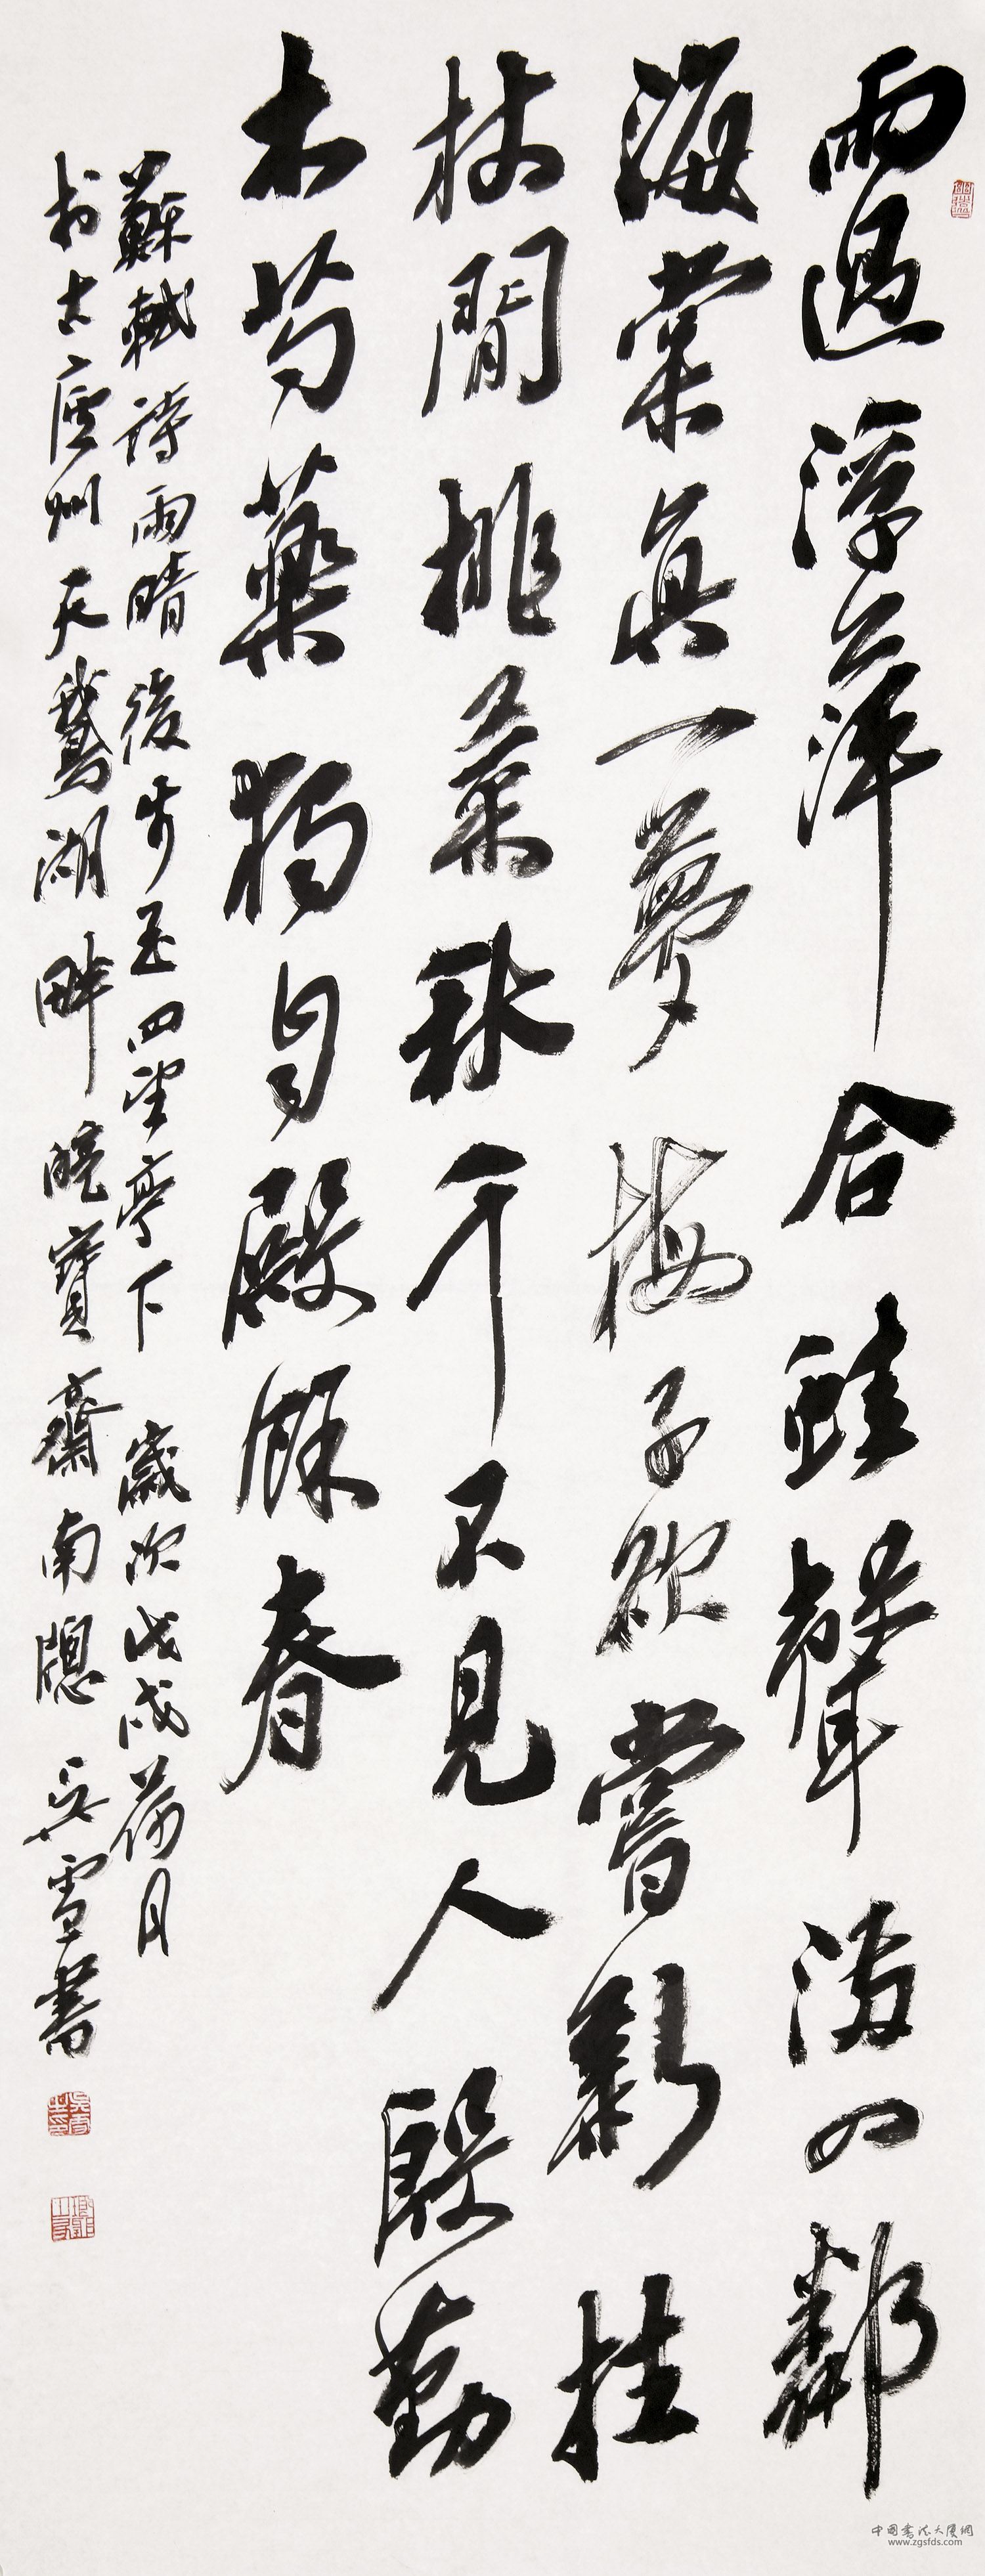 雨過浮萍合蛙聲滿四鄰
海棠真一夢梅子欲嘗新拄
杖閒挑菜鞦韆不見人殷勤
木芍藥獨自殿餘春
蘇軾詩雨晴後步至四望亭下 歲次戊戌荷月
於古廬州天鵝湖畔晚寶齋南窗 吳雪書
中國書法大厦網
www.zgsfds.com